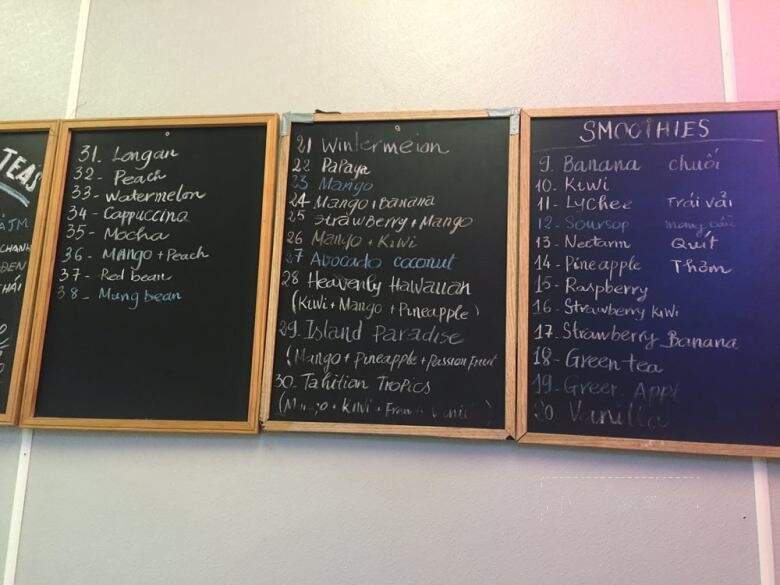 TEAS
31. Longan
32- Peach
33- Watermelon
34- Cappuccina
35- Mocha
36- Mango + Peach
37- Red bean
38- Mung bean
21 Wintermelon
22 Papaya
23 Mango
24 Mango + Banana
25 Strawberry + Mango
26 Mango + Kiwi
27 Avocado coconut
28 Heavenly Hawaiian
(Kiwi + Mango + Pineapple)
29. Island Paradise
(Mango + Pineapple + Passion Fruit
30. Tahitian Tropics
(Mango + Kiwi + French Vanilla)
SMOOTHIES
9. Banana chuối
10. Kiwi
11- Lychee Trái vải
12- Soursop mãng cầu
13- Nectarin Quít
14- Pineapple Thơm
15- Raspberry
16- Strawberry Kiwi
17. Strawberry Banana
18- Green tea
19- Green Appl
20 Vanilla